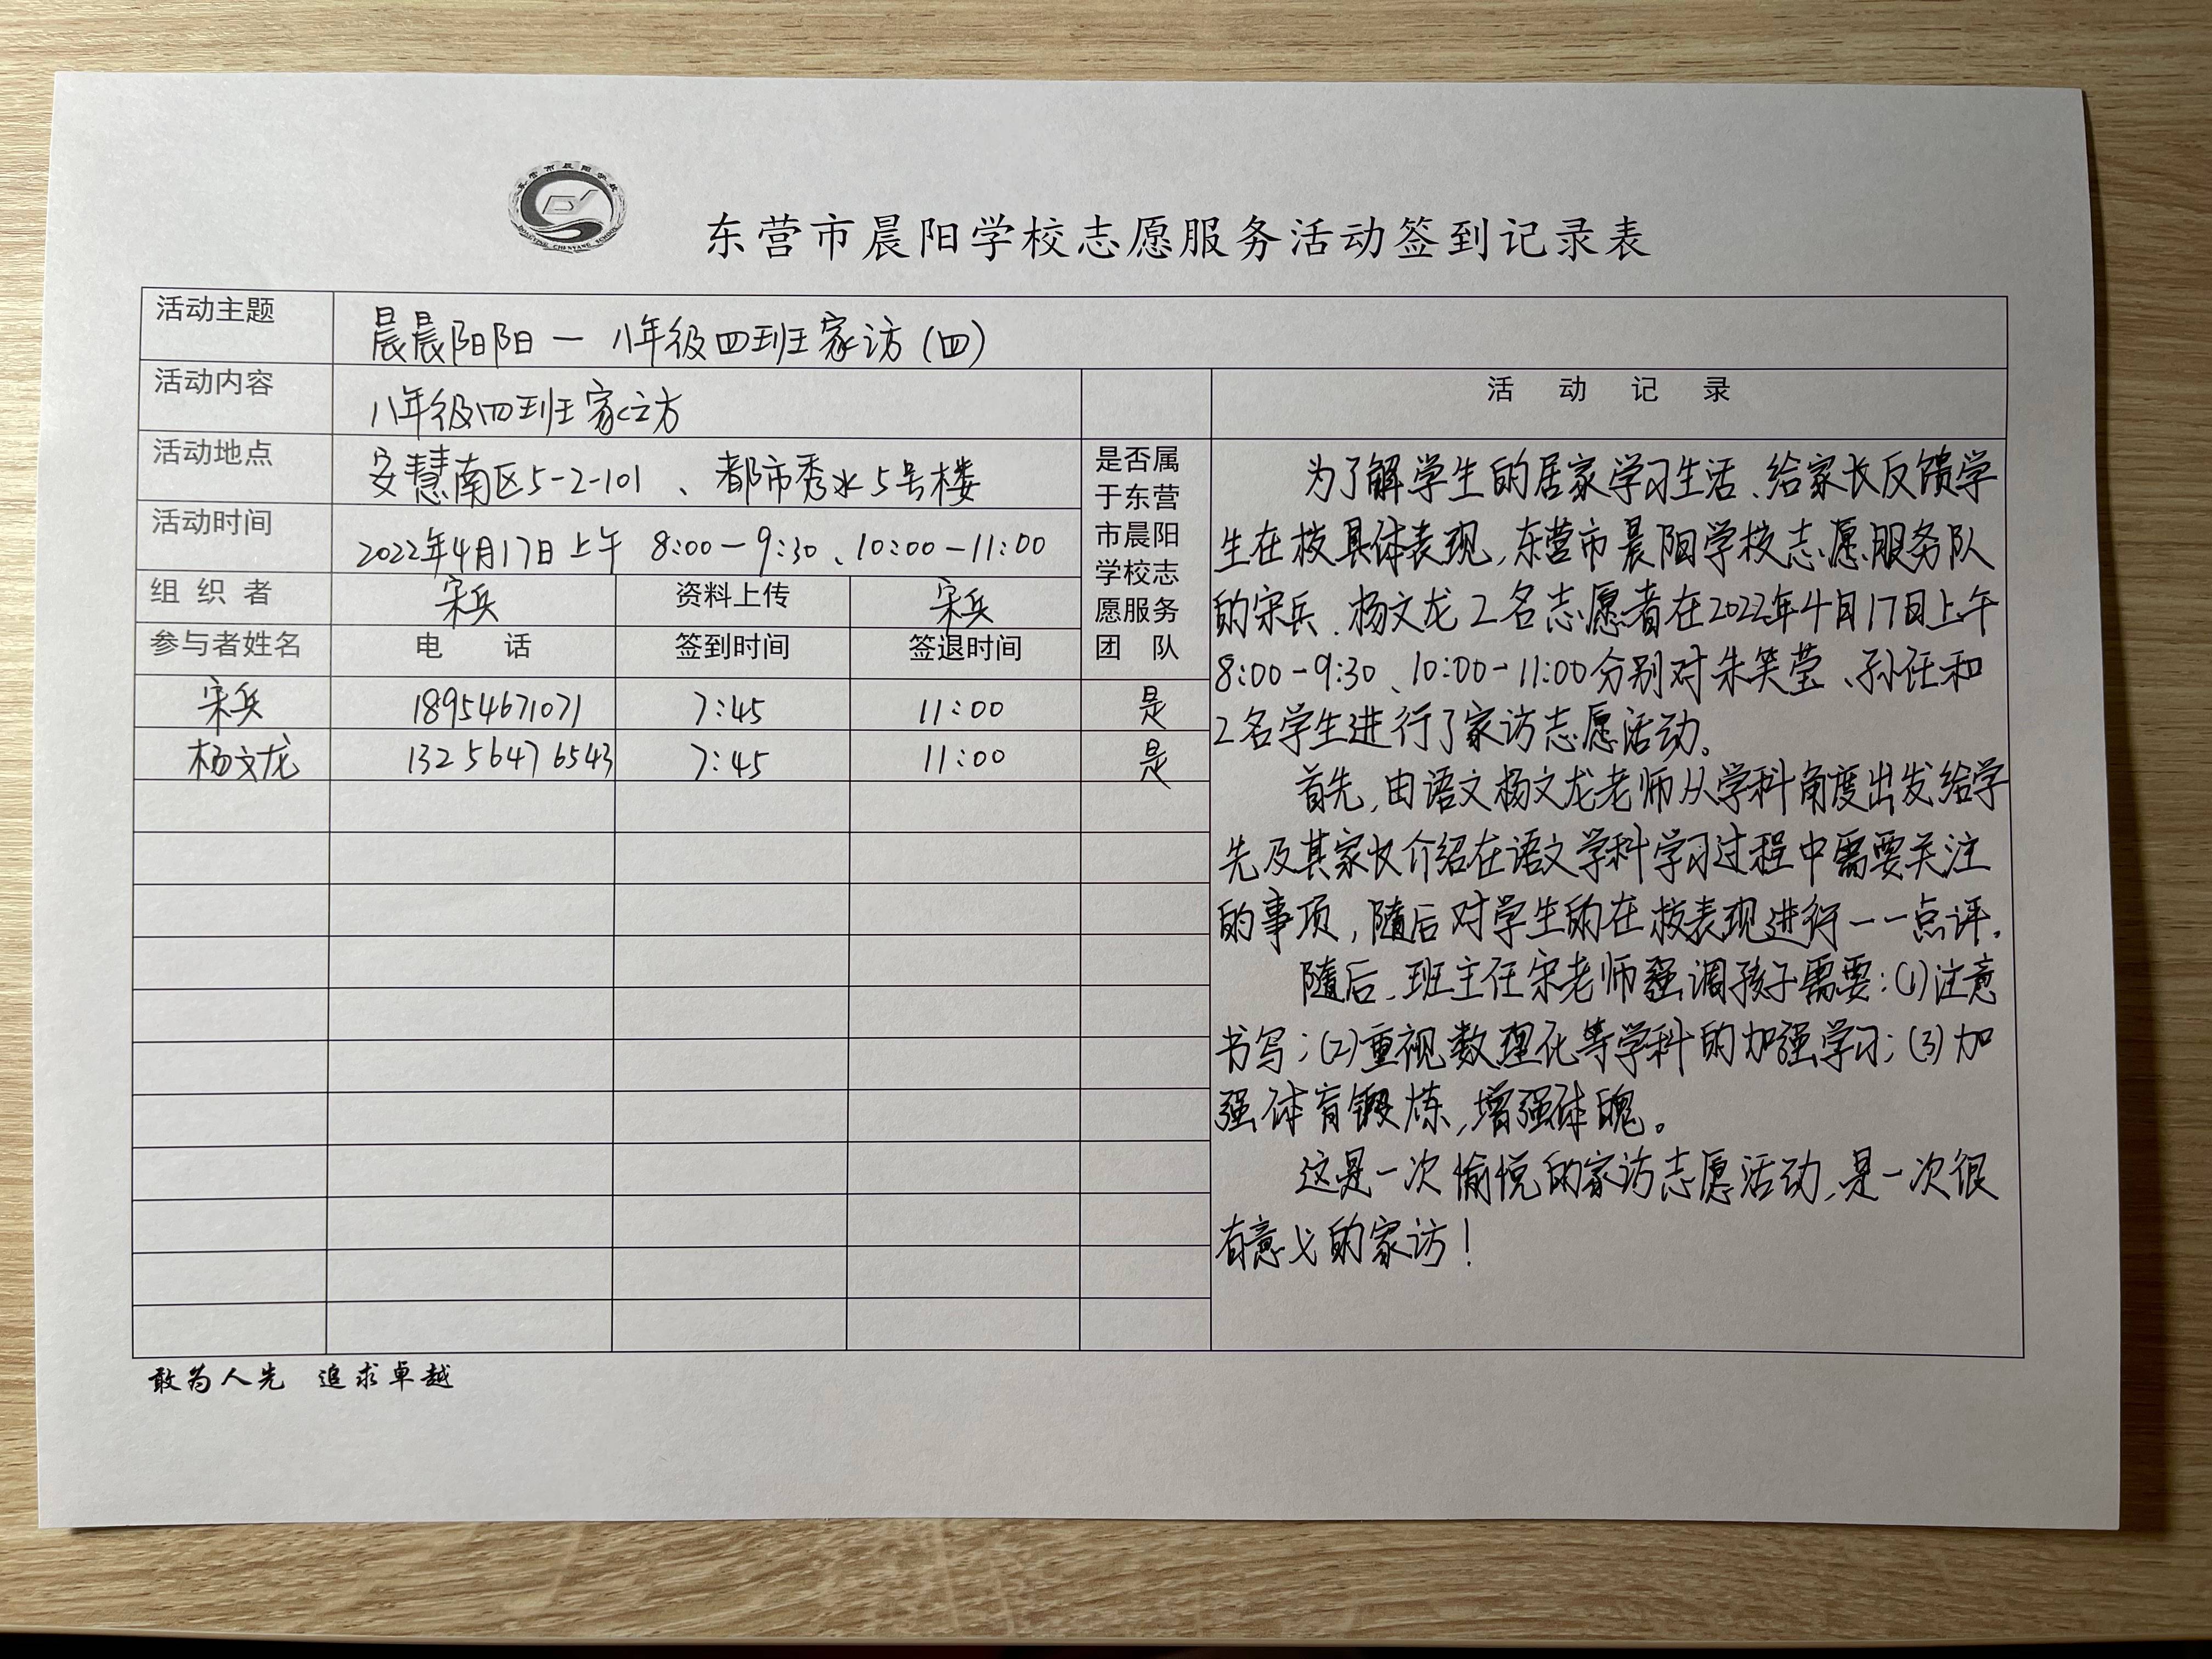 东营市晨阳学校
DONGYING CHENYANG SCHOOL
东营市晨阳学校志愿服务活动签到记录表
活动主题 晨晨阳阳一八年级四班家访(四)
活动内容 八年级四班家访
活 动 记 录
活动地点 安慧南区5-2-101、都市秀水5号楼
活动时间 2022年4月17日上午 8:00-9:30、10:00-11:00
组 织 者 宋兵 资料上传 宋兵
参与者姓名 电 话 签到时间 签退时间
是否属
于东营
市晨阳
学校志
愿服务
团 队
宋兵 18954671071 7:45 11:00 是
杨文龙 13256476543 7:45 11:00 是
为了解学生的居家学习生活、给家长反馈学
生在校具体表现,东营市晨阳学校志愿服务队
的宋兵、杨文龙2名志愿者在2022年4月17日上午
8:00-9:30、10:00-11:00分别对朱笑莹、孙任和
2名学生进行了家访志愿活动。
首先,由语文杨文龙老师从学科角度出发给学
先及其家长介绍在语文学科学习过程中需要关注
的事项,随后对学生的在校表现进行一一点评。
随后、班主任宋老师强调孩子需要:(1)注意
书写;(2)重视数理化等学科的加强学习;(3)加
强体育锻炼,增强体魄。
这是一次愉悦的家访志愿活动,是一次很
有意义的家访!
敢为人先 追求卓越